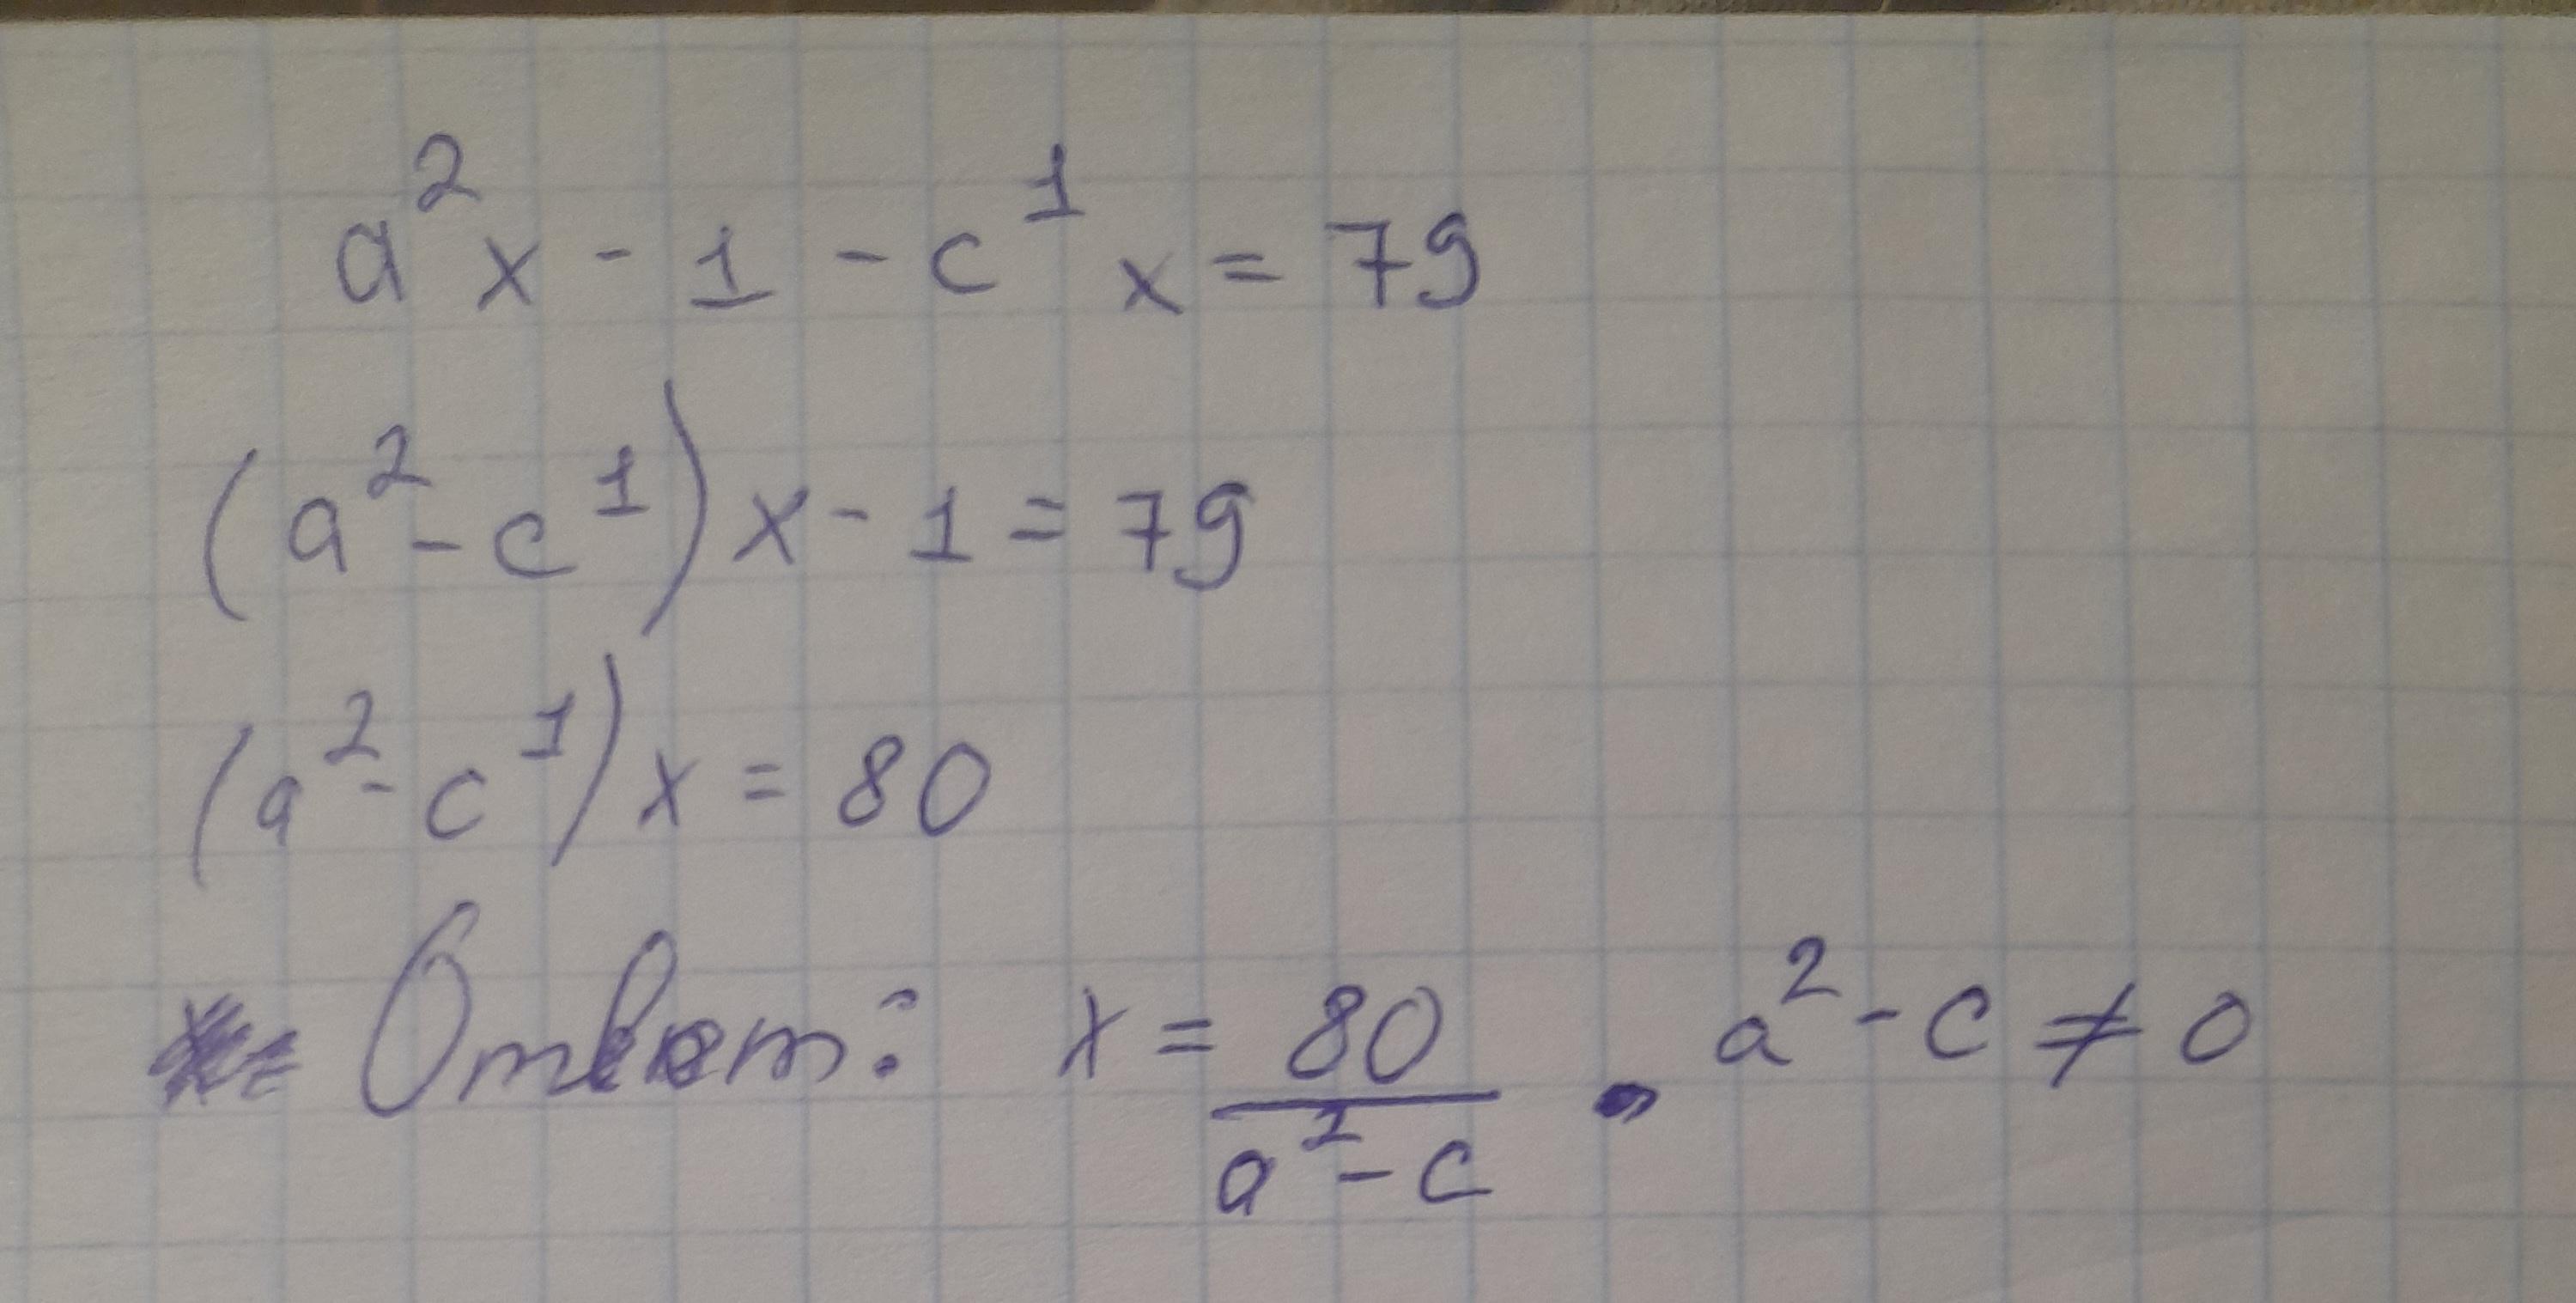 a²x - 1 - c¹x = 79
(a² - c¹)x - 1 = 79
(a² - c¹)x = 80
Ответ: x = 80/(a² - c), a² - c ≠ 0